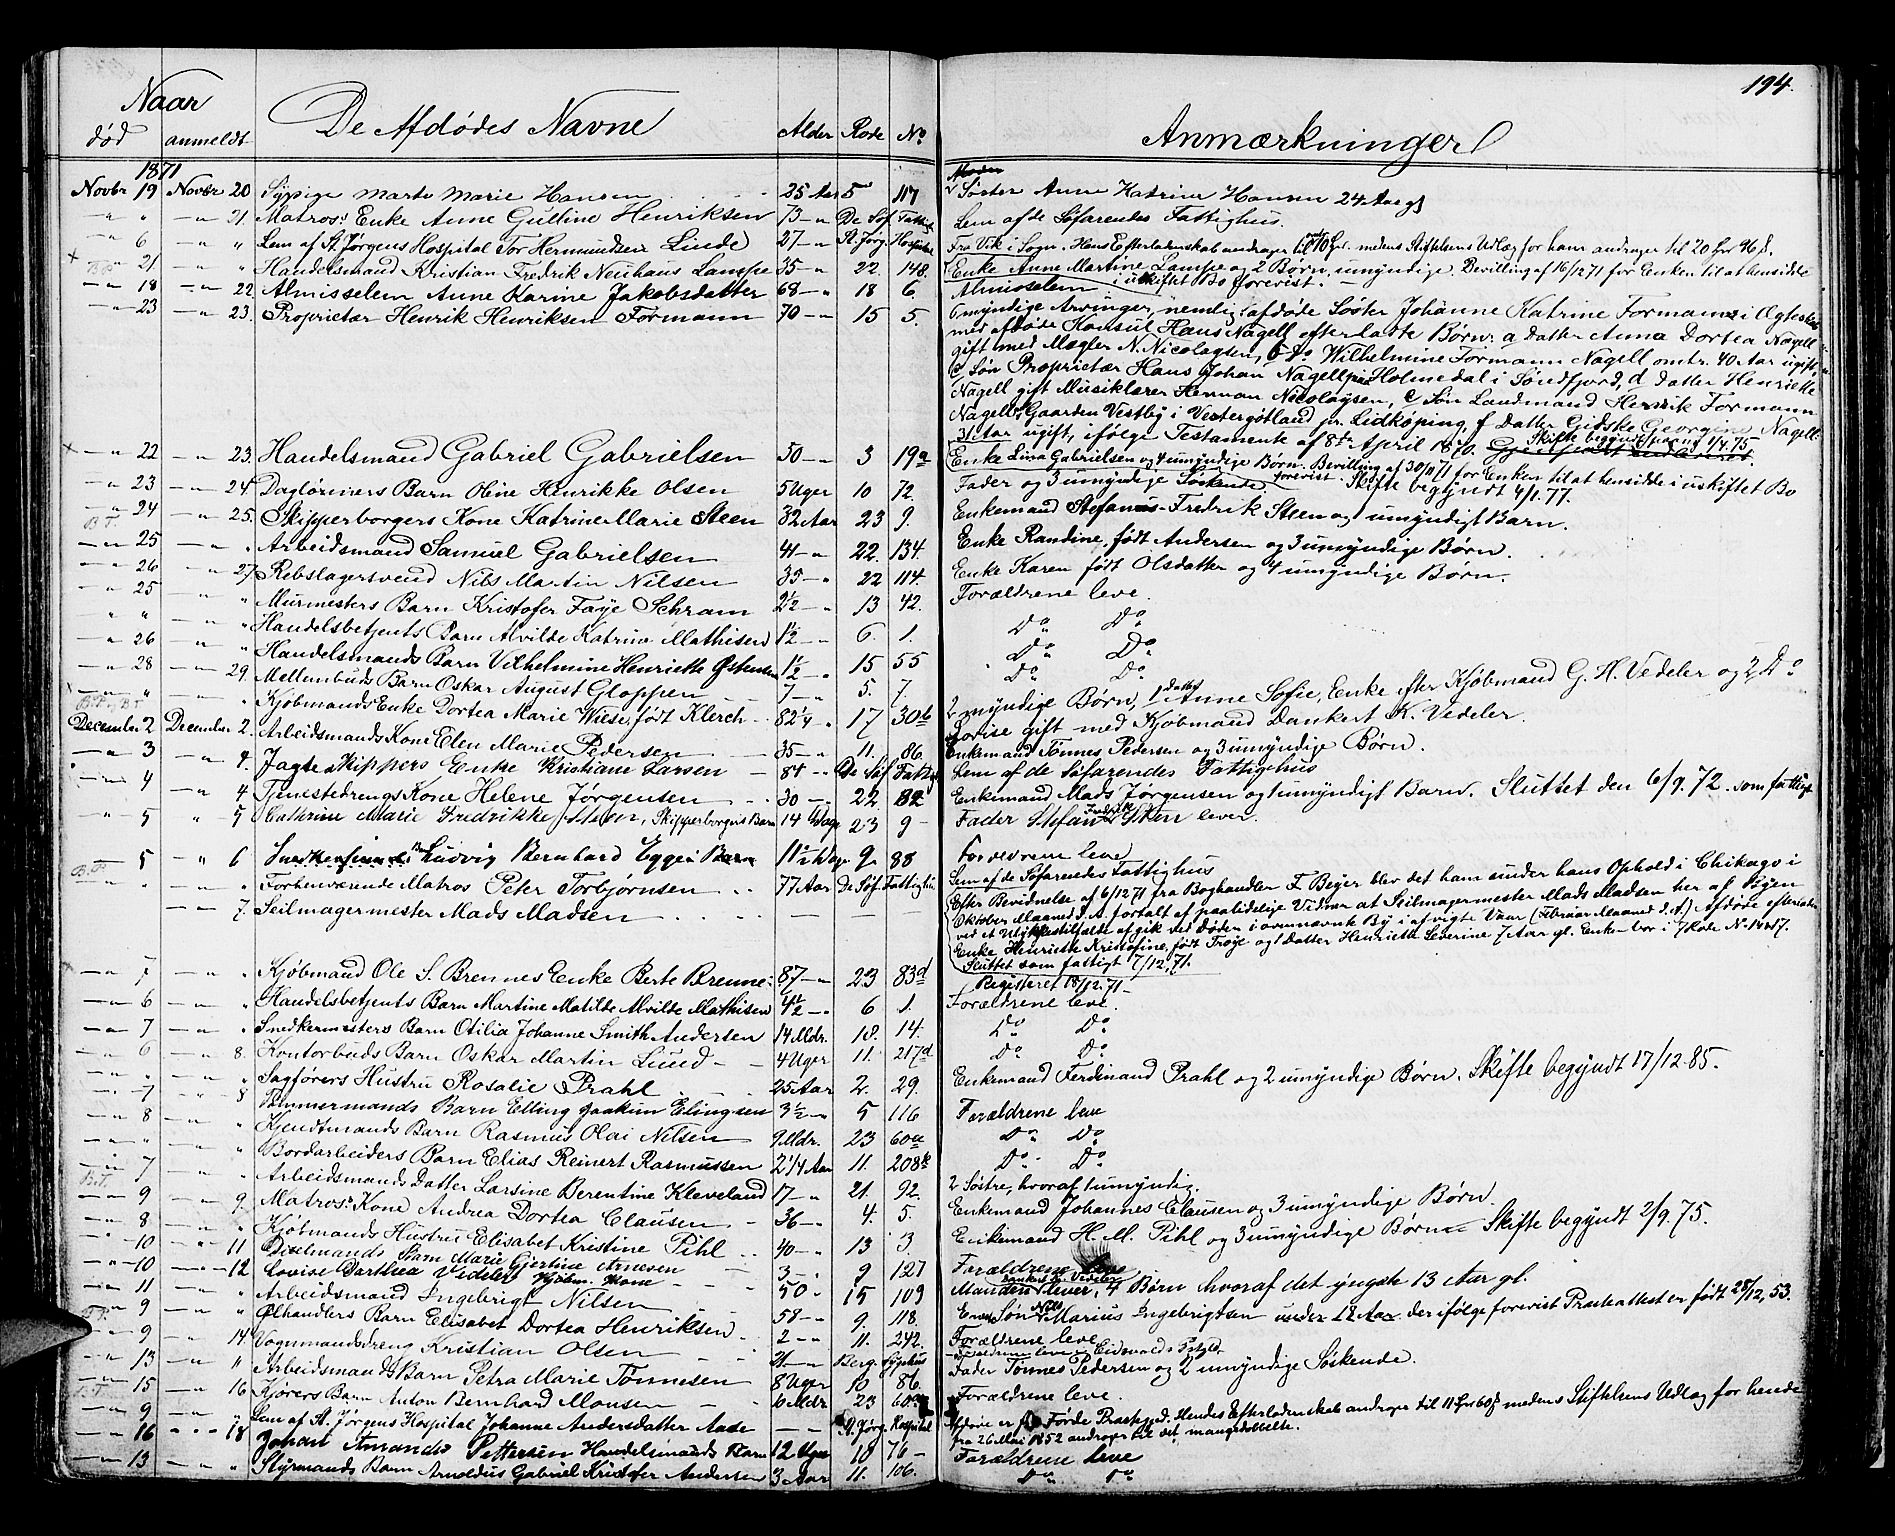 194.
Naar
død anmeldt De Afdødes Navne Alder Rode No Anmærkninger
1871
Novbr 19 Novbr 20 Sypige Marte Marie Hansen 25 Aar 5 117 Søster Anne Katrine Hansen 24 Aar gl
" 21. Matros. Enke Anne Guline Henriksen 73 De Søf. Fattigh. Lem af de Søfarendes Fattighus.
6 " Lem af St. Jørgens Hospital Tor Hermundsen Linde 27 St. Jørg. Hospital Fra Vik i Sogn. Hans Efterladenskab androger til medens Stiftelsens Udlæg for ham androger til 20
21 " Handelsmand Kristian Fredrik Neuhaus Lampe 35 22. 148. Enke Anne Martine Lampe og 2 Børn, umyndige, Bevilling af 16/12 71 for Enken til at hensidde
i uskiftet Bo forevist.
18 22. Almisselem Anne Karine Jakobsdatter 68 18 6. Almisselem
23 23. Proprietær Henrik Henriksen Formann 70 15 5. 6 myndige Arvinger, nemlig afdøde Søster Johanne Katrine Formanns i Ægteskab
med afdøde Konsul Hans Nagell efterladte Børn: a Datter Anna Dortea Nagell
gift med Mægler N. Nicolaysen, b Do Wilhelmine Formann Nagell omtr. 40 Aar ugift,
c Søn Proprietær Hans Johan Nagell paa Holmedal i Søndfjord, d Datter Henriette
Nagell gift Musiklærer Herman Nicolaysen, e Søn Landmand Henrik Formann
Nagell, Gaarden Vestby i Vestergøtland pr. Lidkøping, f Datter Gidske Georgine Nagell
31 Aar ugift, ifølge Testamente af 8de April 1870. Skifte begyndt 1/7 75
22 23. Handelsmand Gabriel Gabrielsen 50 3 19a Enke Lina Gabrielsen og 4 umyndige Børn. Bevilling af 30/11 71 for Enken til at hensidde i uskiftet Bo
forevist. Skifte begyndt 4/1. 77.
23 24. Dagløniers Barn Oline Henrikke Olsen 5 Uger 10 72. Fader og 3 umyndige Søskende.
24 25. Skipperborgers Kone Katrine Marie Steen 32 Aar 23 9. Enkemand Stefanus Fredrik Steen og 1 umyndigt Barn.
25 " Arbeidsmand Samuel Gabrielsen 41 22. 134. Enke Randine, født Andersen og 3 umyndige Børn.
26 27. Rebslagersvend Nils Martin Nilsen 35 22 114. Enke Karen født Olsdatter og 4 umyndige Børn.
25 " Murmesters Barn Kristofer Faye Schram 2½ 13 42. Forældrene leve.
" " Handelsbetjents Barn Alvilde Katrine Mathisen 1½ 6. 1. Do Do
26 " Handelsmands Barn Vilhelmine Henriette 1½ 15 55 Do Do
28 29. Mellembuds Barn Oskar August Gloppen 7 5. 7. Do Do
" " Kjøbmands Enke Dortea Marie Wiese, født Klerch 82¼ 17 30b 2 myndige Børn, 1 Datter Anne Sofie, Enke efter Kjøbmand G. H. Vedeler og 2 Do
Lovise gift med Kjøbmand Dankert K. Vedeler.
December 2 December 2. Arbeidsmands Kone Elen Marie Pedersen 35 11. 86. Enkemand Tønnes Pedersen og 3 umyndige Børn.
3 4. Jagteskippers Enke Kristiane Larsen 84 De Søf Fattigh Lem af de Søfarendes Fattighus
4 4 Tjenestedrengs Kone Helene Jørgensen 30 22 82 Enkemand Mads Jørgensen og 1 umyndigt Barn. Sluttet den 6/9. 72. som fattigt
5 5 Cathrine Marie Fredrikke Steen, Skipperborgers Barn 14 Dage 23 9 Fader Stefan Fredrik Steen lever.
5 6 Ludvig Bernhard Egge 11½ 9 88 Forældrene leve
" " Forhenværende Matros Peter Torbjørnsen 77 Aar De Søf. Fattighus Lem af de Søfarendes Fattighus
7. Seilmagermester Mads Madsen Efter Bevidnelse af 6/12 71 fra Boghandler F. Beyer blev det ham under hans Ophold i Chikago i
Oktober Maaned d. A. fortalt af paalidelige Vidner at Seilmagermester Mads Madsen her af Byen
ved et Ulykkestilfælde afgik ved Døden i ovennævnte By i afvigte Vaar (Februar Maaned d. A.) Afdøde efterlader
Enke Henriette Kristofine, født Troye og 1 Datter Henriette Severine 7 Aar gl. Enken bor i 7 Rode No
Sluttet som fattigt 7/12. 71.
7 " Kjøbmand Ole S. Brennes Enke Berte Brenne 87 23 83d Registeret 18/12. 71
6 " Handelsbetjents Barn Martine Matilde Alvilde Mathisen 4½ 6 1. Forældrene leve.
7 " Snedkermesters Barn Otilia Johanne Smith Andersen 14 Mdr. 18. 14. Do Do
6 8. Kontorbuds Barn Oskar Martin Lund 4 Uger 11. 217d Do Do
" " Sagførers Hustru Rosalie Prahl 25 Aar 2. 29. Enkemand Ferdinand Prahl og 2 umyndige Børn. Skifte begyndt 17/12. 85.
7 8 Tømmermands Barn Elling Joakim Elingsen 3½ 5 116 Forældrene leve
8 " Kjendtmands Barn Rasmus Olai Nilsen 9 Mdr. 23 60a Do Do
" " Bordarbeiders Barn Elias Reinert Rasmussen 2¼ Aar 11. 208k Do Do
7 " Arbeidsmands Datter Larsine Berentine Kleveland 17 21. 92. 2 Søstre, hvoraf 1 umyndig.
9 9. Matros. Kone Andrea Dortea Clausen 36 4. 5. Enkemand Johannes Clausen og 3 umyndige Børn.
8 " Kjøbmands Hustru Elisabet Kristine Pihl 40 13 3 Enkemand H. M. Pihl og 3 umyndige Børn. Skifte begyndt 2/9. 75.
10 11 Barn Marie Gjertine Arnesen 3 9 127 Forældrene leve
10 12 Lovise Dorthea Vedeler Kjøbm. Kone 50 15 109 Manden Dankert K. Vedeler lever, 4 Børn hvoraf det yngste 13 Aar gl.
11 " Arbeidsmand Ingebrigt Nilsen 58 9. 118. Søn Nils Marius Ingebrigtsen under 18 Aar. der ifølge forevist Præsteattest er født 28/12, 53.
9 " Ølhandlers Barn Elisabet Dortea Henriksen 2 11. 242. Forældrene leve
9 14. Vognmandsdreng Kristian Olsen 21 Berg. Sygehus Forældrene leve i Eidsvold
13 " Arbeidsmands Barn Petra Marie Tønnesen 8 Uger 10 86. Fader Tønnes Pedersen og 2 umyndige Søskende.
15 16 Kjørers Barn Anton Bernhard Monsen 6 Mdr. 23 60 Forældrene leve.
9 " Lem af St. Jørgens Hospital Johanne Andersdatter Aase St. Jørg. Hospital Afdøde er fra Førde Præstegjd. Hendes Efterladenskab androger til 11 medens Stiftelsens Udlæg for hende
fra 26 Mai 1852 androger til det mangedobbelte.
16 18 Johan Amandus Pettersen Handelsmands Barn 12 Uger 10 76 Forældrene leve
13 " Styrmands Barn Arnoldus Gabriel Kristofer Andersen 3 Aar 11. 106. Do Do